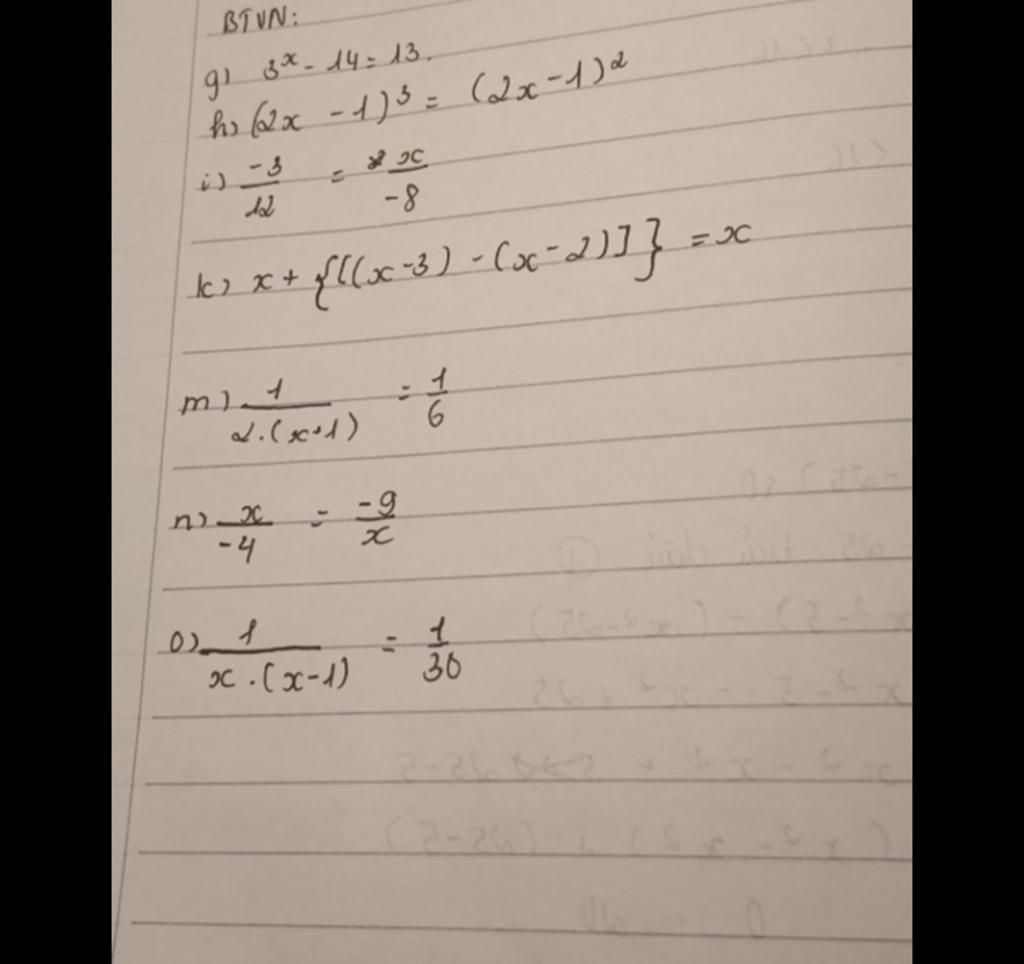 BTVN:
g) 3^x - 14 = 13.
h) (2x - 1)^3 = (2x - 1)^2
i) -3/12 = x/-8
k) x + {[(x-3) - (x-2)]} = x
m) 1/2.(x+1) = 1/6
n) x/-4 = -9/x
o) 1/x.(x-1) = 1/30